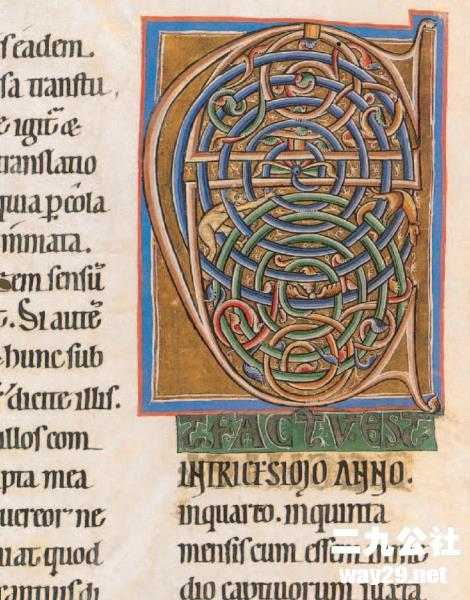 s eadem.
sa transtu
e igit̄ æ
translatio
quia p cola
mmata.
em sensū
t. Si autē
hunc sub
dicite illis.
illos com
pta mea
uereor ne
iat quod
cantius di
E
T FACTV EST
INTRICESIOJO ANNO.
in quarto. in quinta
mensis cum essem in me
dio captiuorum iuxta
二九公社
way29.net